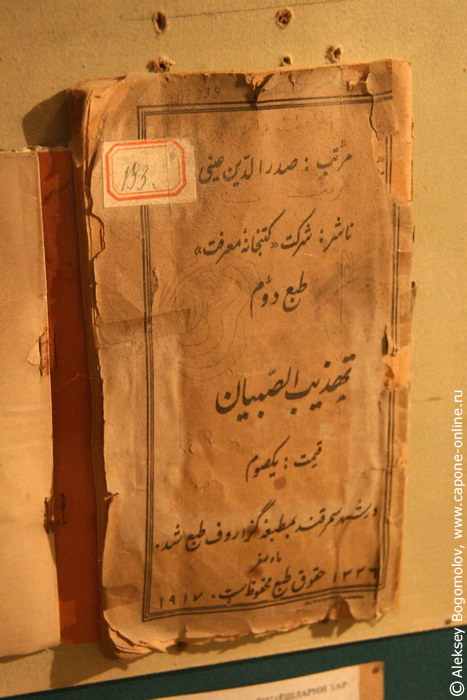 193.
مرتب : صدرالدّین عینی
ناشر : شرکت «کتبخانهٔ معرفت»
طبع دوّم
تهذیب الصّبیان
قیمت : یکصوم
در شهر سمرقند بمطبعهٔ گزاروف طبع شد.
ماه صفر
۱۳۳۶ حقوق طبع محفوظ است. ۱۹۱۷
© Aleksey Bogomolov, www.capone-online.ru